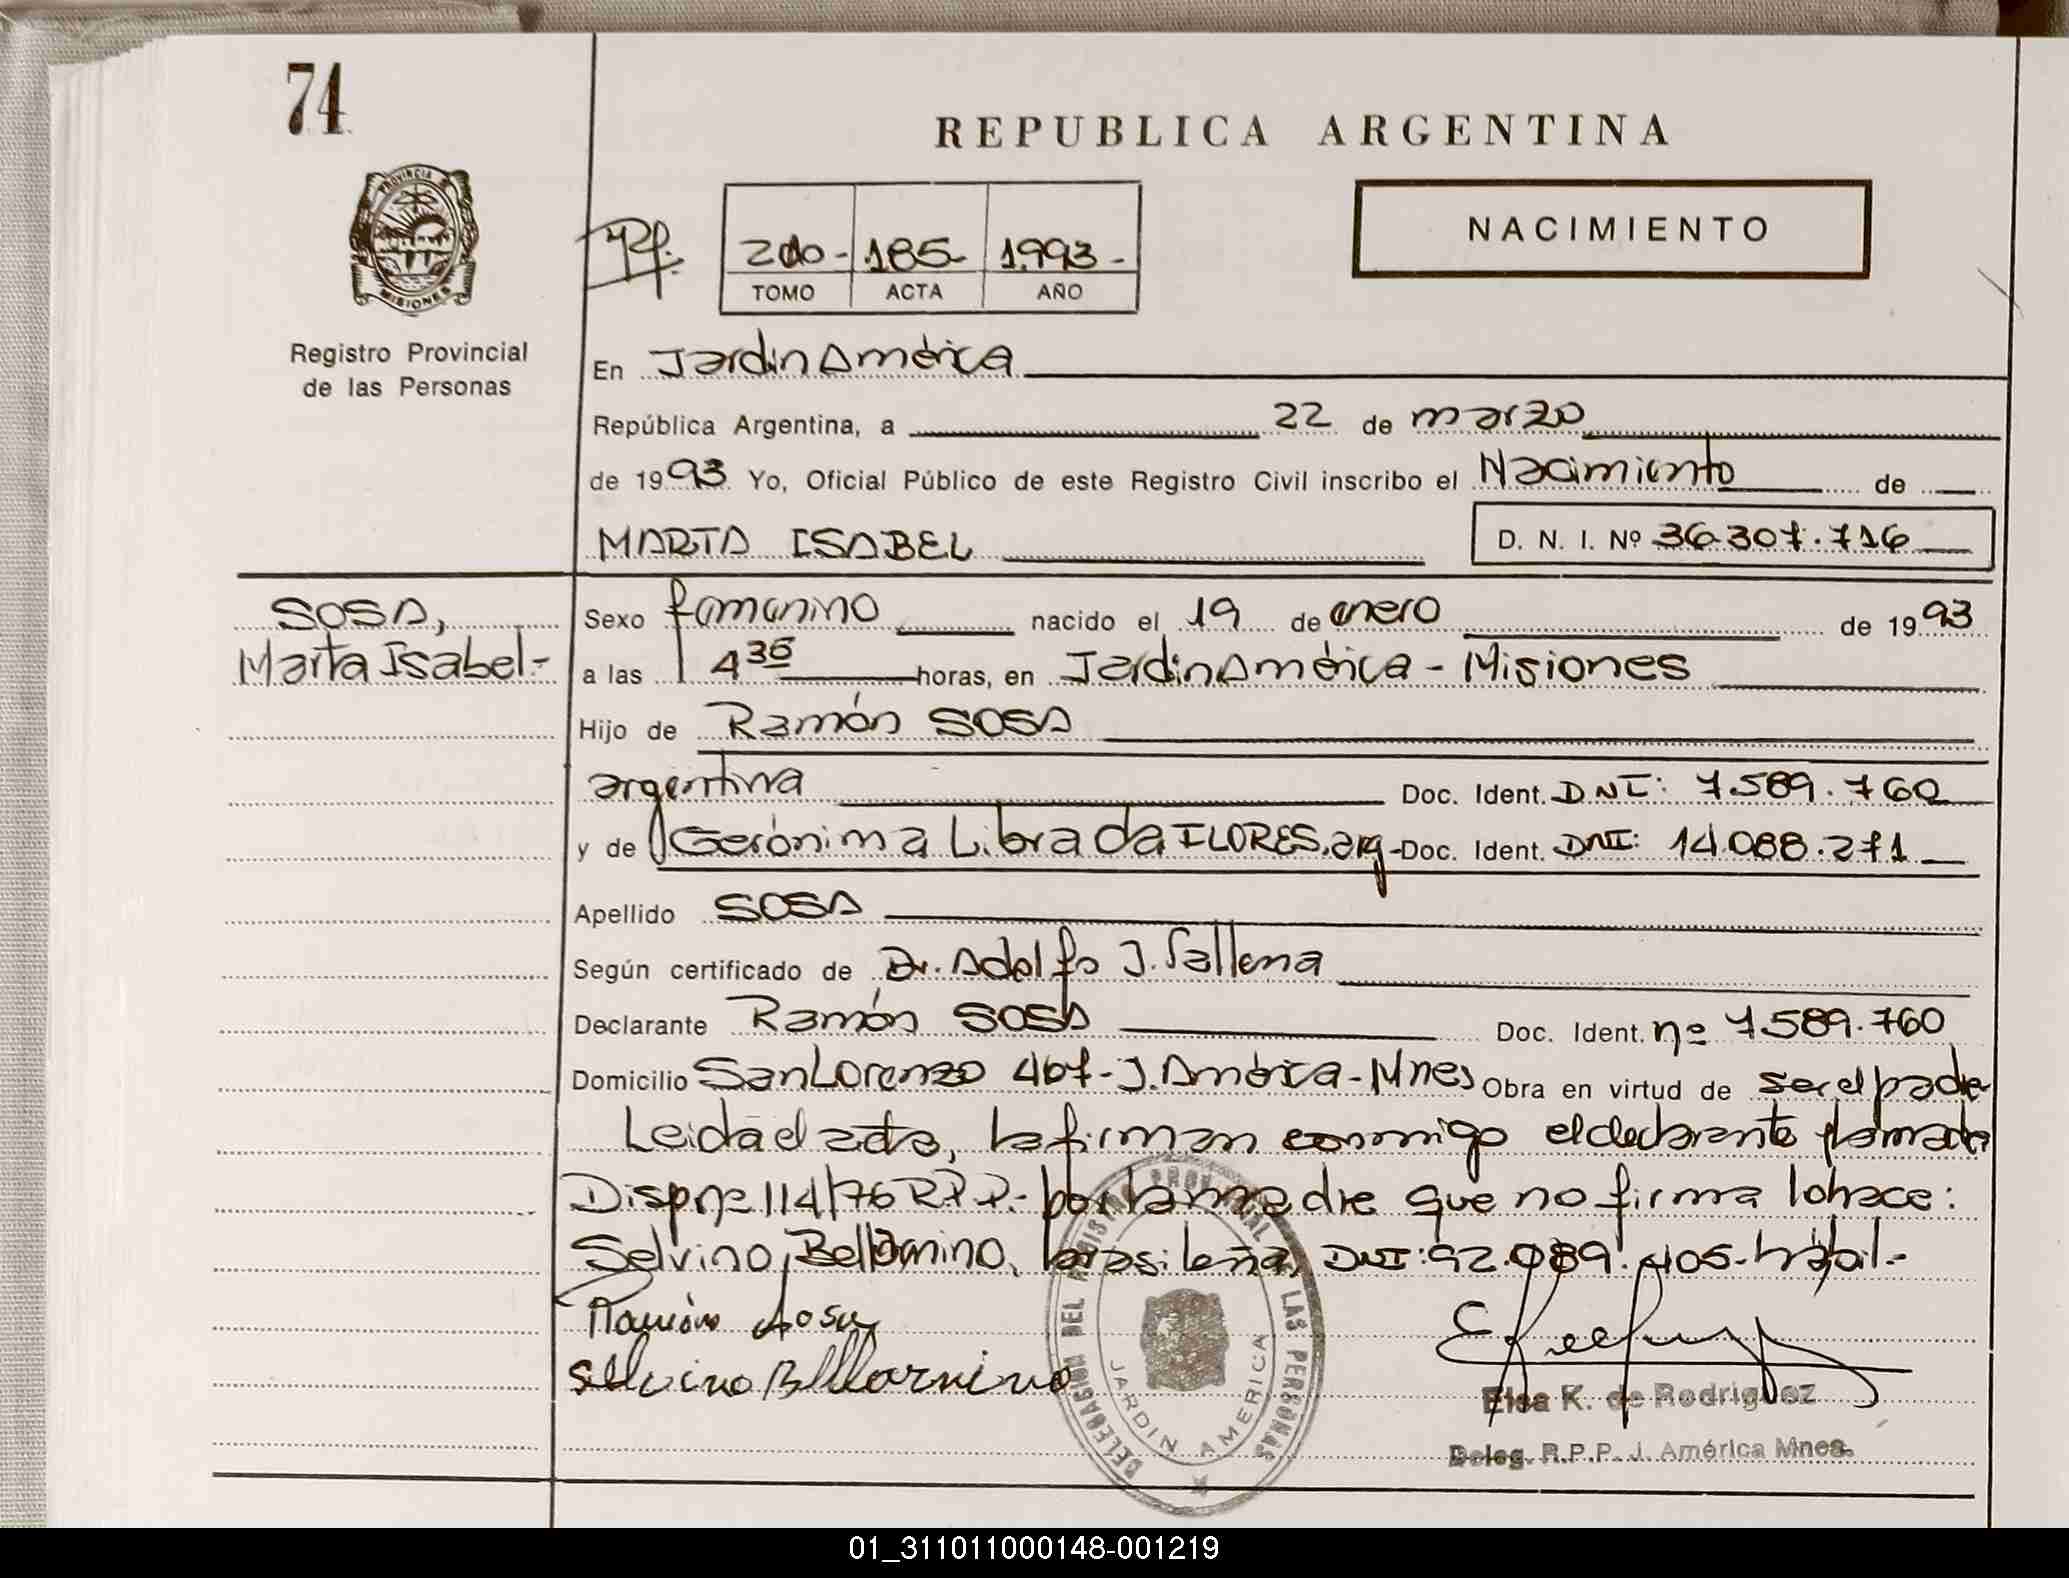 74
REPUBLICA ARGENTINA
PROVINCIA DE
MISIONES
NACIMIENTO
2do- 185- 1993-
TOMO ACTA AÑO
Registro Provincial
de las Personas
En Jardin América
República Argentina, a 22 de marzo
de 1993 Yo, Oficial Público de este Registro Civil inscribo el Nacimiento de
MARTA ISABEL D. N. I. Nº 36.307.716
SOSA,
Marta Isabel.-
Sexo femenino nacido el 19 de enero de 1993
a las 4 horas, en Jardin América - Misiones
Hijo de Ramón SOSA
argentina Doc. Ident. DNI: 7.589.760
y de Gerónima Librada FLORES, arg- Doc. Ident. DNI: 14.088.271
Apellido SOSA
Según certificado de Dr. Adolfo J.
Declarante Ramón SOSA Doc. Ident. nº 7.589.760
Domicilio San Lorenzo 467- J. América - Mnes Obra en virtud de ser el padre
Leida el acta, la firman conmigo el declarante
Disp nº 114/76 R.P.P.- por la madre que no firma lo hace:
Selvino Bellarmino, brasileña, DNI: 92.089.405- hábil.-
Ramón Sosa
Selvino Bellarmino
DELEGACION DEL REGISTRO PROVINCIAL DE LAS PERSONAS
JARDIN AMERICA
Elsa K. de Rodriguez
Deleg. R.P.P. J. América Mnes.
01_311011000148-001219